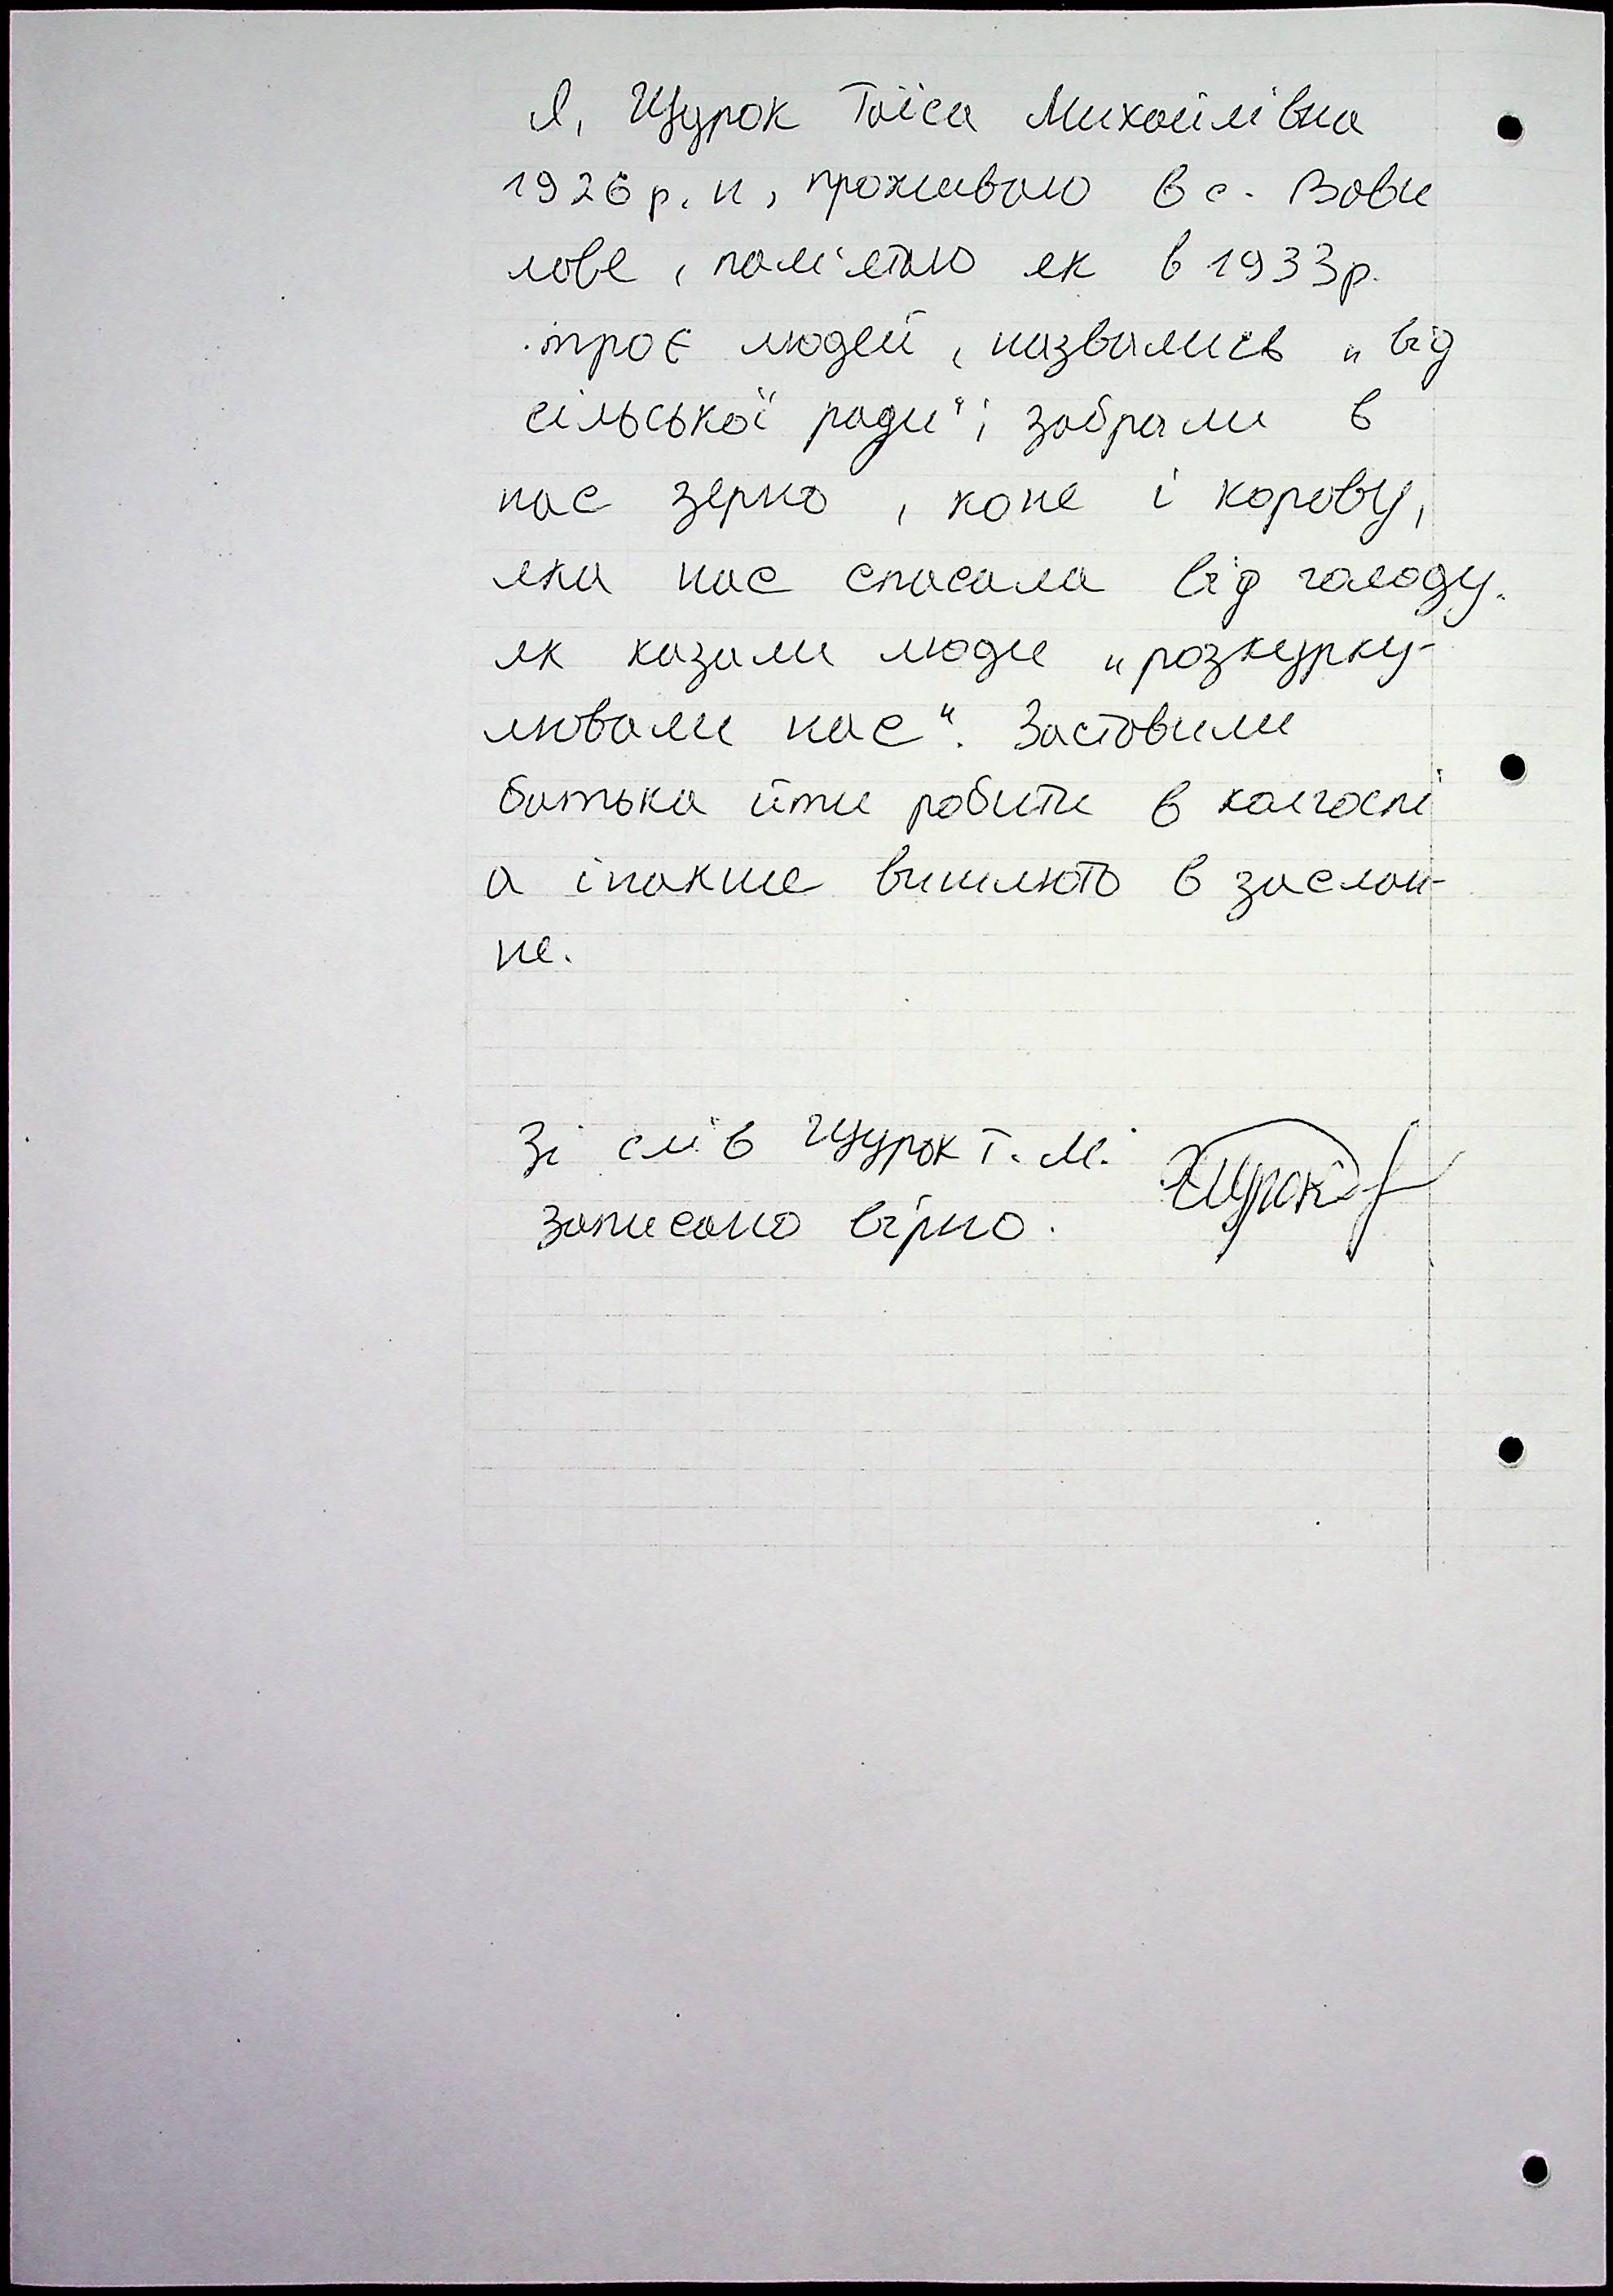 Я, Щурок Таїса Михайлівна
1926 р. н, проживаю в с. Вови
лове, пам'ятаю як в 1933р.
троє людей, назвались „від
сільської ради"; забрали в
нас зерно, коне і корову,
яка нас спасала від голоду.
як казали люди „розкурку-
лювали нас". Заставили
батька йти робити в колгоспі
а інакше вишлють в заслан-
не.
Зі слів Щурок Т. М. Щурок
записано вірно.